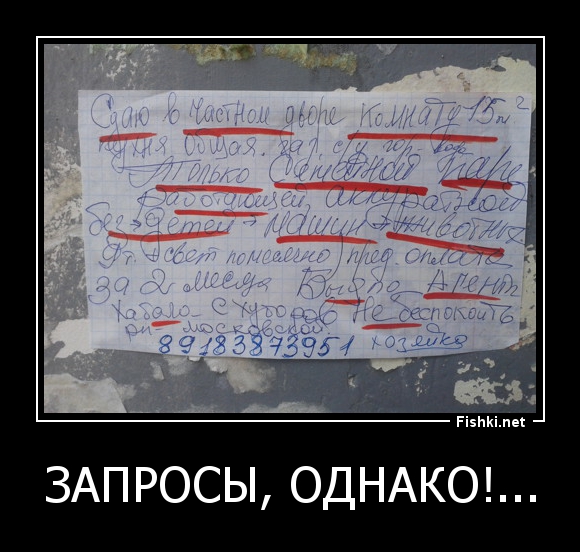 Сдаю в частном дворе комнату 15 м²
кухня общая. газ с/у гор. вода
Только Семейной паре
Работающей, аккуратной
без детей машин животных
свет помесячно пред. оплата
за 2 месяца Выгбо Агент
Хабало - с хуторов Не беспокоить
рн - московской
89183873951 хозяйка
Fishki.net
ЗАПРОСЫ, ОДНАКО!...